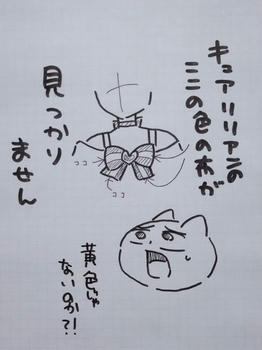 キュアリリアンの
ココの色の布が
見つかり
ません
ココ
ココ
ココ
黄色じゃ
ないのか?!